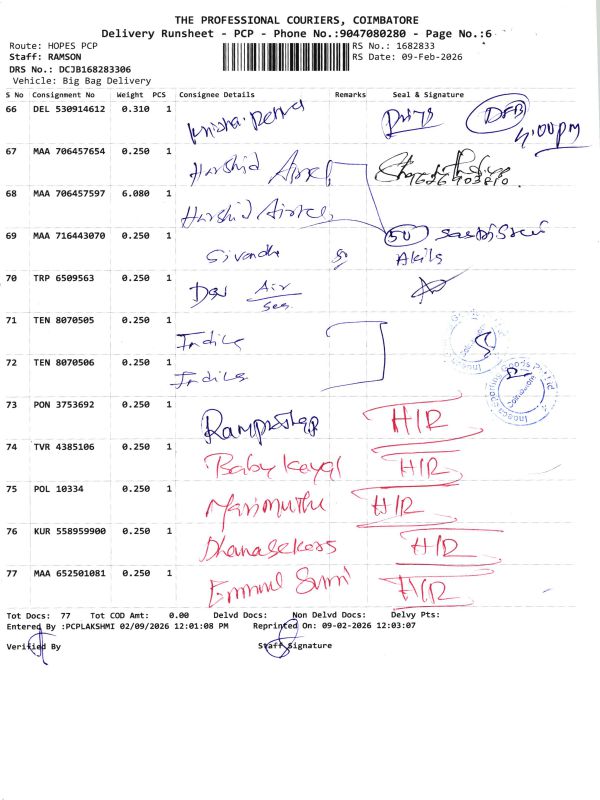 THE PROFESSIONAL COURIERS, COIMBATORE
Delivery Runsheet - PCP - Phone No.:9047080280 - Page No.:6
Route: HOPES PCP RS No.: 1682833
Staff: RAMSON RS Date: 09-Feb-2026
DRS No.: DCJB168283306
Vehicle: Big Bag Delivery
S No Consignment No Weight PCS Consignee Details Remarks Seal & Signature
66 DEL 530914612 0.310 1
4:00pm
67 MAA 706457654 0.250 1 Harshid Airtel
68 MAA 706457597 6.080 1 Harshid Airtel
69 MAA 716443070 0.250 1 Sivandhi 50
Akila
70 TRP 6509563 0.250 1 Dev Air
71 TEN 8070505 0.250 1 Indica
72 TEN 8070506 0.250 1 Indica
73 PON 3753692 0.250 1 H/R
74 TVR 4385106 0.250 1 Baby Keyal H/R
75 POL 10334 0.250 1 Marimuthu H/R
76 KUR 558959900 0.250 1 Dhanasekars H/R
77 MAA 652501081 0.250 1 H/R
Tot Docs: 77 Tot COD Amt: 0.00 Delvd Docs: Non Delvd Docs: Delvy Pts:
Entered By :PCPLAKSHMI 02/09/2026 12:01:08 PM Reprinted On: 09-02-2026 12:03:07
Verified By Staff Signature